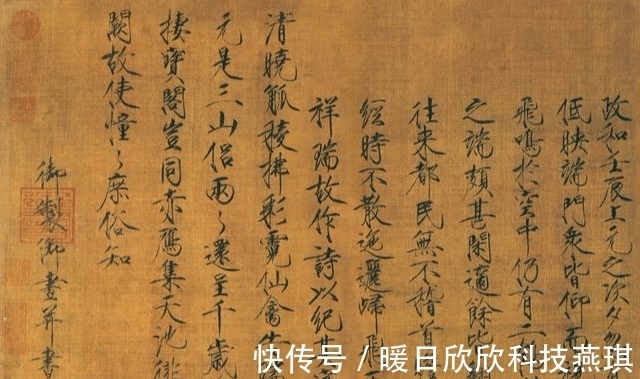 政和壬辰上元之次夕
低映端門眾皆仰而
飛鳴於空中仍有二
之端頗甚閑適餘皆
往來都民無不稽首
經時不散迤邐歸飛
祥瑞故作詩以紀其
清曉觚稜拂彩霓仙禽告
元是三山侶兩〻還呈千歲
棲寶閣豈同赤鴈集天池徘
闕故使憧〻庶俗知
御製御畫并書
快传号/暖日欣欣科技燕琪